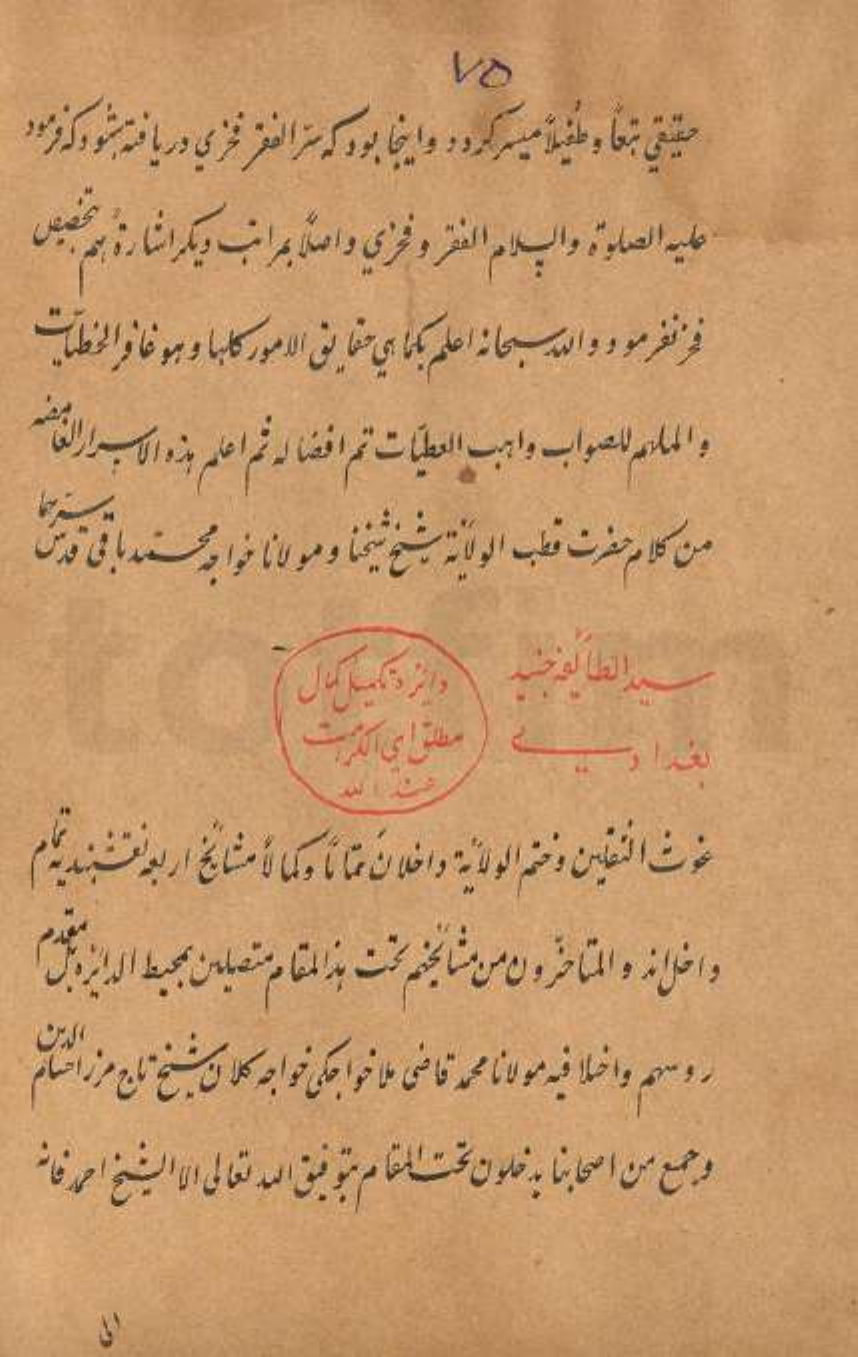 ٧٥
حقیقي تبعاً و طفیلاً میسر کردد و اینجا بود که سّر الفقر فخري دریافته بشود که فرمود
علیه الصلوة والسلام الفقر و فخري واصلاً بمراتب دیکر اشارةً هم بتخصیص
فخر نفرمود و والله سبحانه اعلم بکماهي حقایق الامور کلها و هو غافر الخطیّات
و الملهم للصواب واهب العطیّات تم افضاله ثم اعلم هذه الاسرار الغامضه
من کلام حضرت قطب الولایة شیخ شیخنا و مولانا خواجه محمد باقی قدس سرّهما
سید الطائفه جنید
بغدادی
دایرة تکمیل کمال
مطلق اي الکرامت
عند الله
غوث الثقلین و ختم الولایة داخلان تماماً و کمالاً مشایخ اربعه نقشبندیه تمام
داخل اند و المتاخّرون من مشائخهم تحت هذالمقام متصلین بمحیط الدائره بل مقدم
روسهم داخلا فیه مولانا محمد قاضی ملا خواجکی خواجه کلان شیخ تاج مرزا حسام الدین
و جمع من اصحابنا یدخلون تحت المقام بتوفیق الله تعالی الا الشیخ احمد فانه